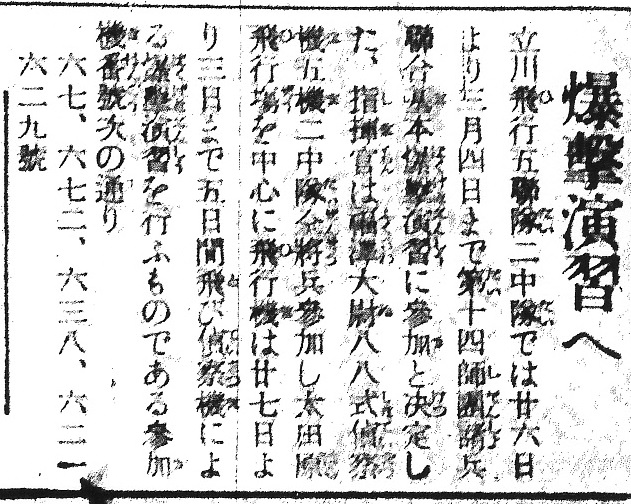 爆撃演習へ
立川飛行五聯隊二中隊では廿六日
より三月四日まで第十四師團諸兵
聯合基本爆撃演習に參加と決定し
た、指揮官は大尉八八式偵察
機五機二中隊全將兵參加し太田原
飛行場を中心に飛行機は廿七日よ
り三日まで五日間飛び偵察機によ
る爆撃演習を行ふものである參加
機番號次の通り
六七、六七二、六三八、六二一
六二九號